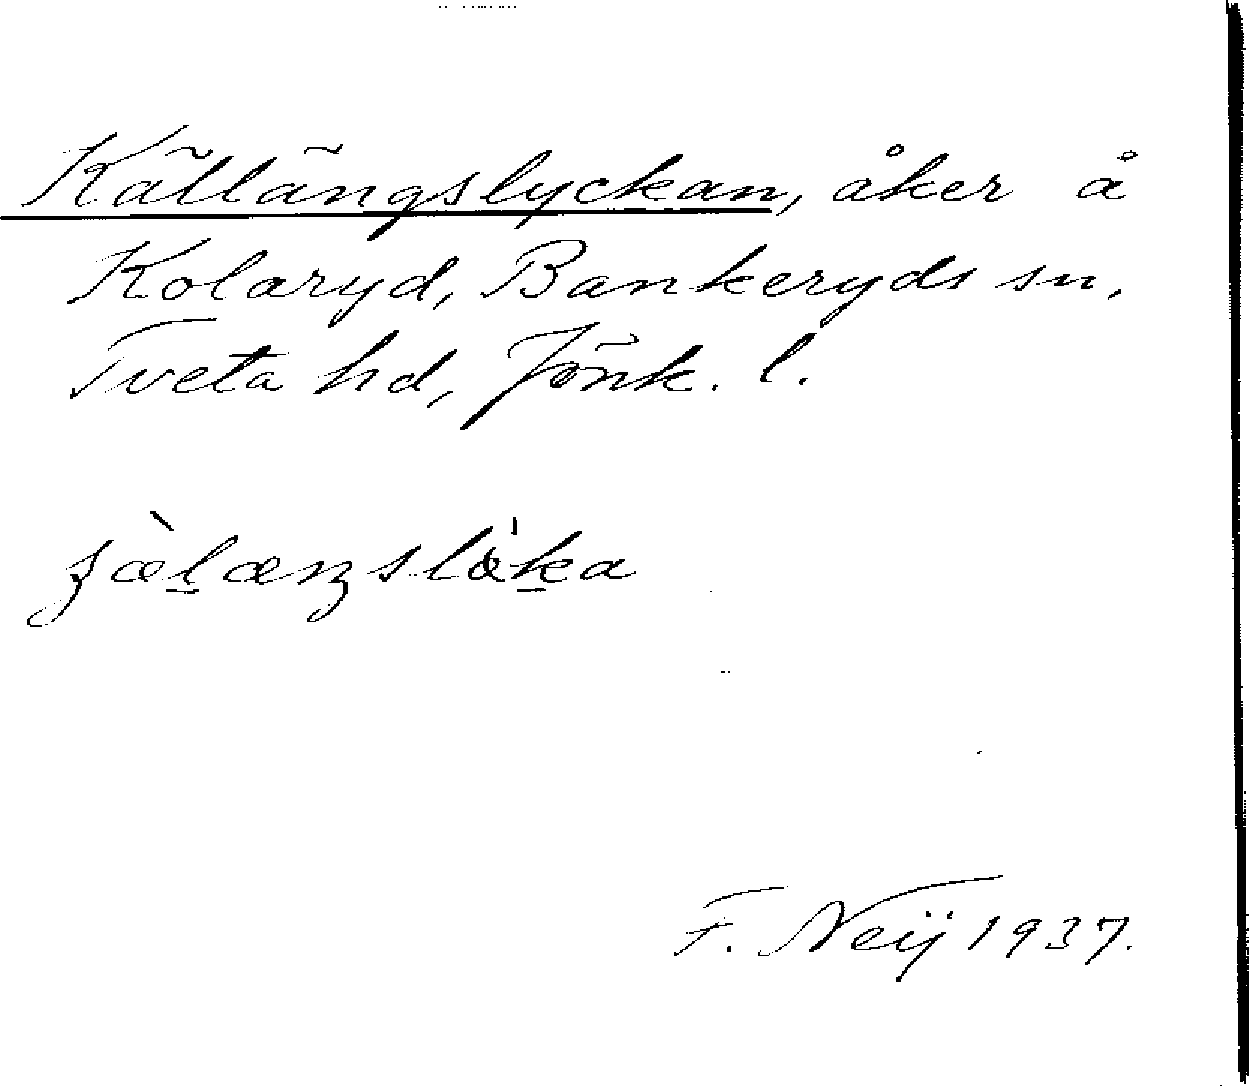 Källängslyckan, åker å
Kolaryd, Bankeryds sn,
Tveta hd, Jönk. l.
F. Neij 1937.